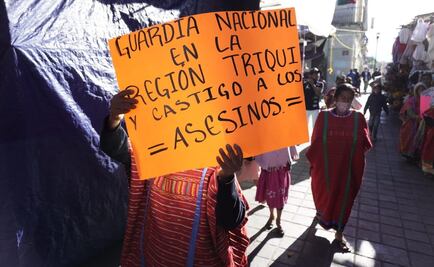 GUARDIA NACIONAL
EN LA
REGIÓN TRIQUI
Y CASTIGO A LOS
=ASESINOS.=